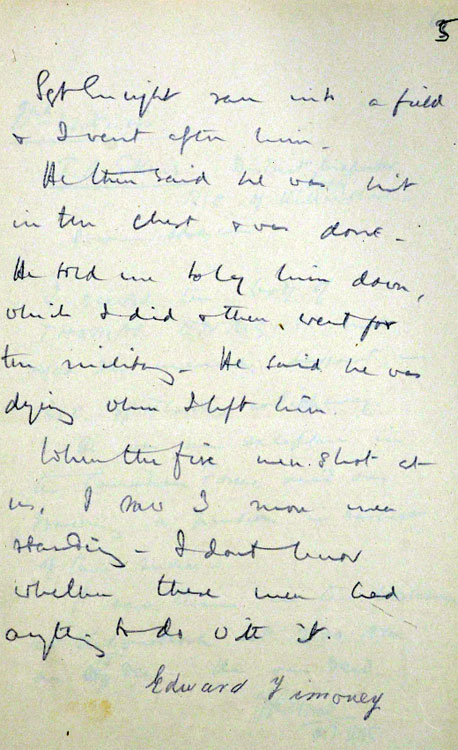 5
Sgt Enright ran into a field
& I went after him -
He then said he was hit
in the chest & was done -
He told me to lay him down,
which I did & then went for
the military - He said he was
dying when I left him.
When the five men shot at
us, I saw 3 more men
standing - I dont know
whether these men had
anything to do with it.
Edward Timoney